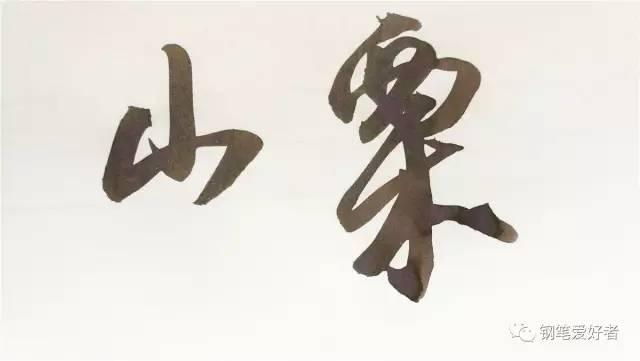 山栗
钢笔爱好者